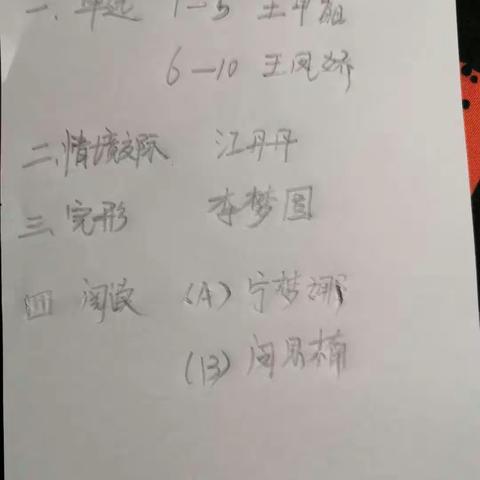 一、单选 1—5 王
6—10 王凤娇
二、情境交际 江丹丹
三、完形 李梦圆
四 阅读 (A) 宁梦娜
(B) 闵思楠